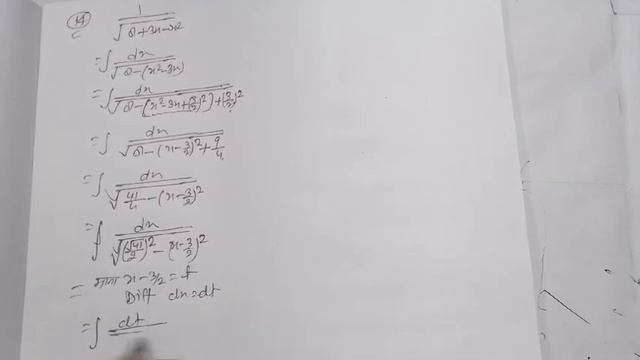 14 1/√(8+3x-x²)
= ∫ dx/√(8-(x²-3x))
= ∫ dx/√(8-(x²-3x+(3/2)²)+(3/2)²)
= ∫ dx/√(8-(x-3/2)²+9/4)
= ∫ dx/√(41/4-(x-3/2)²)
= ∫ dx/√((√41/2)²-(x-3/2)²)
= माना x-3/2=t
Diff dx=dt
= ∫ dt